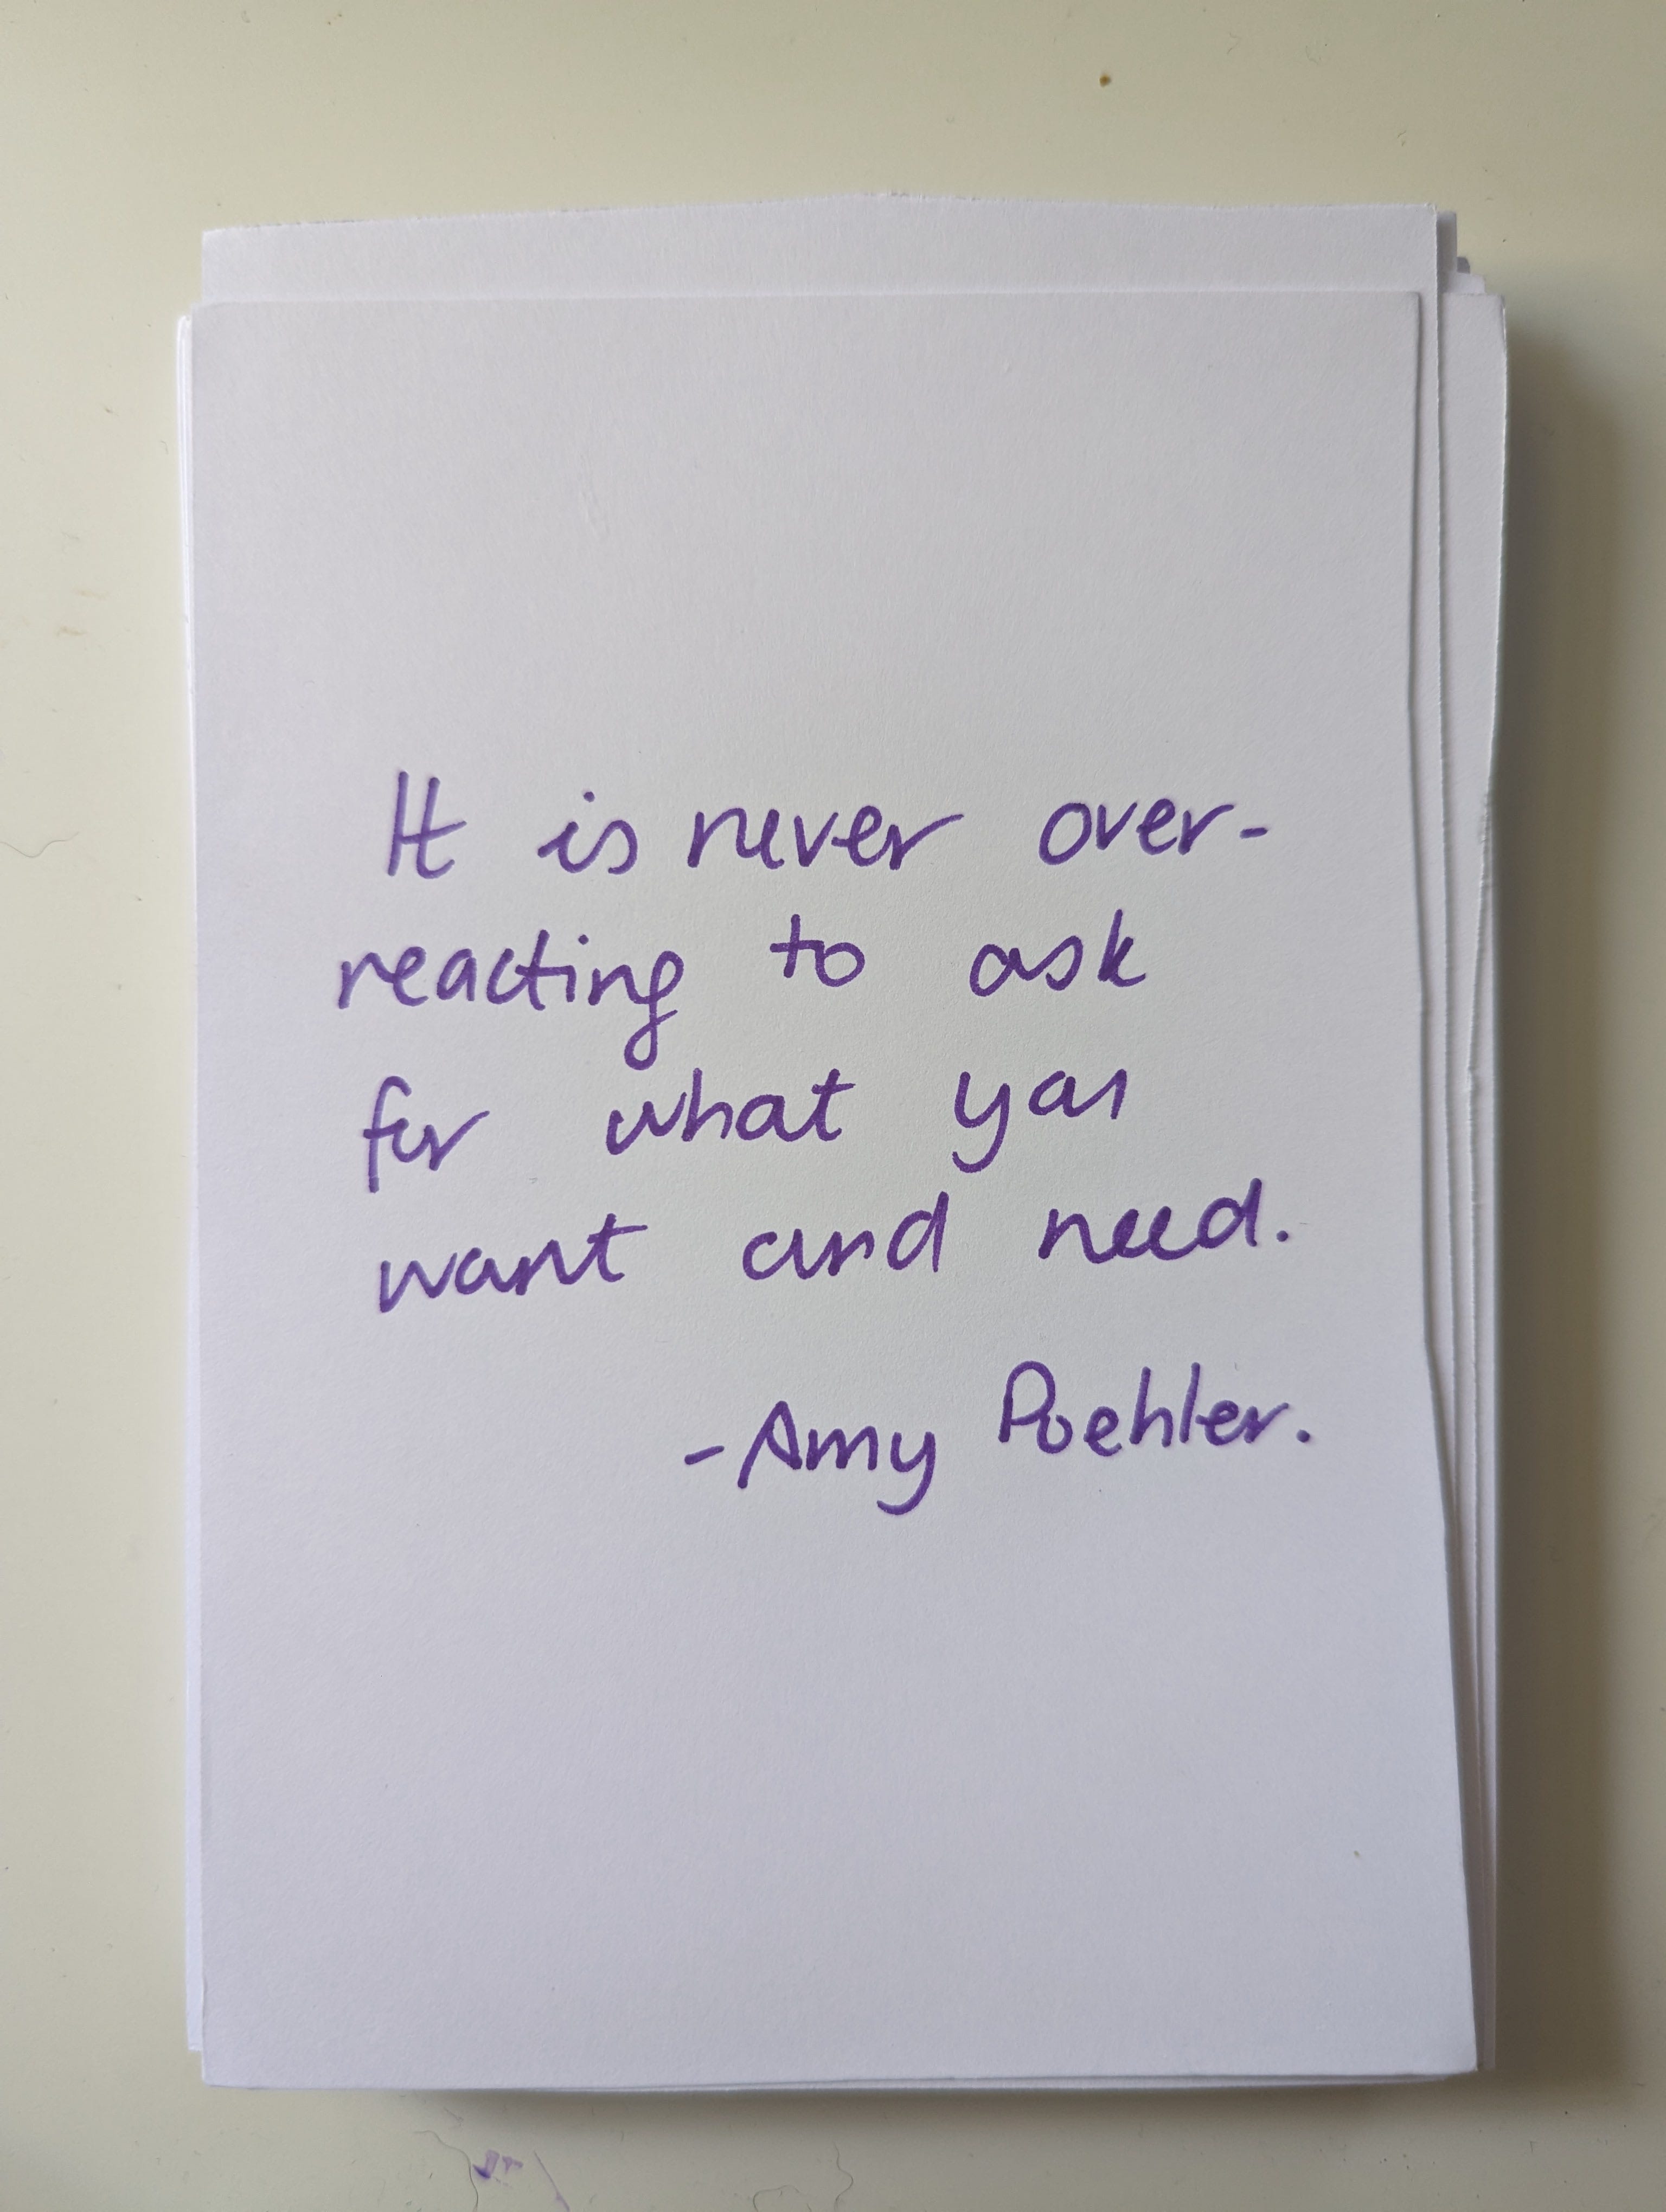 It is never over-
reacting to ask
for what you
want and need.
-Amy Poehler.